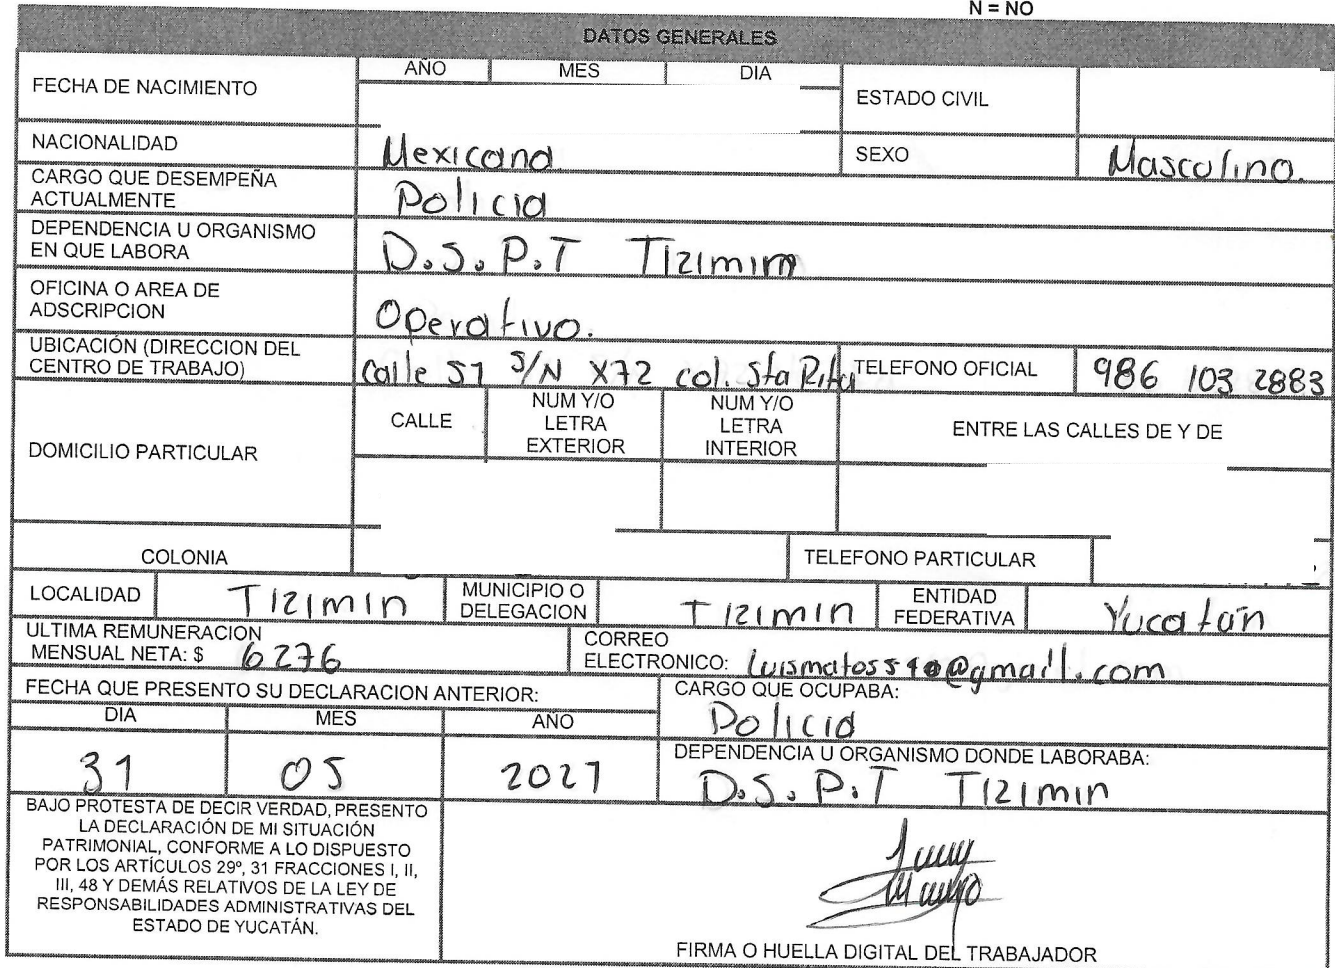 N = NO
DATOS GENERALES
FECHA DE NACIMIENTO
AÑO MES DIA
ESTADO CIVIL
NACIONALIDAD Mexicana SEXO Masculino.
CARGO QUE DESEMPEÑA
ACTUALMENTE
Policia
DEPENDENCIA U ORGANISMO
EN QUE LABORA
D.S.P.T Tizimin
OFICINA O AREA DE
ADSCRIPCION
Operativo.
UBICACIÓN (DIRECCION DEL
CENTRO DE TRABAJO)
calle 51 S/N X72 col. Sta Rita
TELEFONO OFICIAL 986 103 2883
DOMICILIO PARTICULAR
CALLE
NUM Y/O
LETRA
EXTERIOR
NUM Y/O
LETRA
INTERIOR
ENTRE LAS CALLES DE Y DE
COLONIA TELEFONO PARTICULAR
LOCALIDAD Tizimin
MUNICIPIO O
DELEGACION
Tizimin
ENTIDAD
FEDERATIVA
Yucatán
ULTIMA REMUNERACION
MENSUAL NETA: $ 6276
CORREO
ELECTRONICO: luismatos540@gmail.com
FECHA QUE PRESENTO SU DECLARACION ANTERIOR:
DIA MES AÑO
31 05 2021
CARGO QUE OCUPABA:
Policia
DEPENDENCIA U ORGANISMO DONDE LABORABA:
D.S.P.T Tizimin
BAJO PROTESTA DE DECIR VERDAD, PRESENTO
LA DECLARACIÓN DE MI SITUACIÓN
PATRIMONIAL, CONFORME A LO DISPUESTO
POR LOS ARTÍCULOS 29º, 31 FRACCIONES I, II,
III, 48 Y DEMÁS RELATIVOS DE LA LEY DE
RESPONSABILIDADES ADMINISTRATIVAS DEL
ESTADO DE YUCATÁN.
FIRMA O HUELLA DIGITAL DEL TRABAJADOR